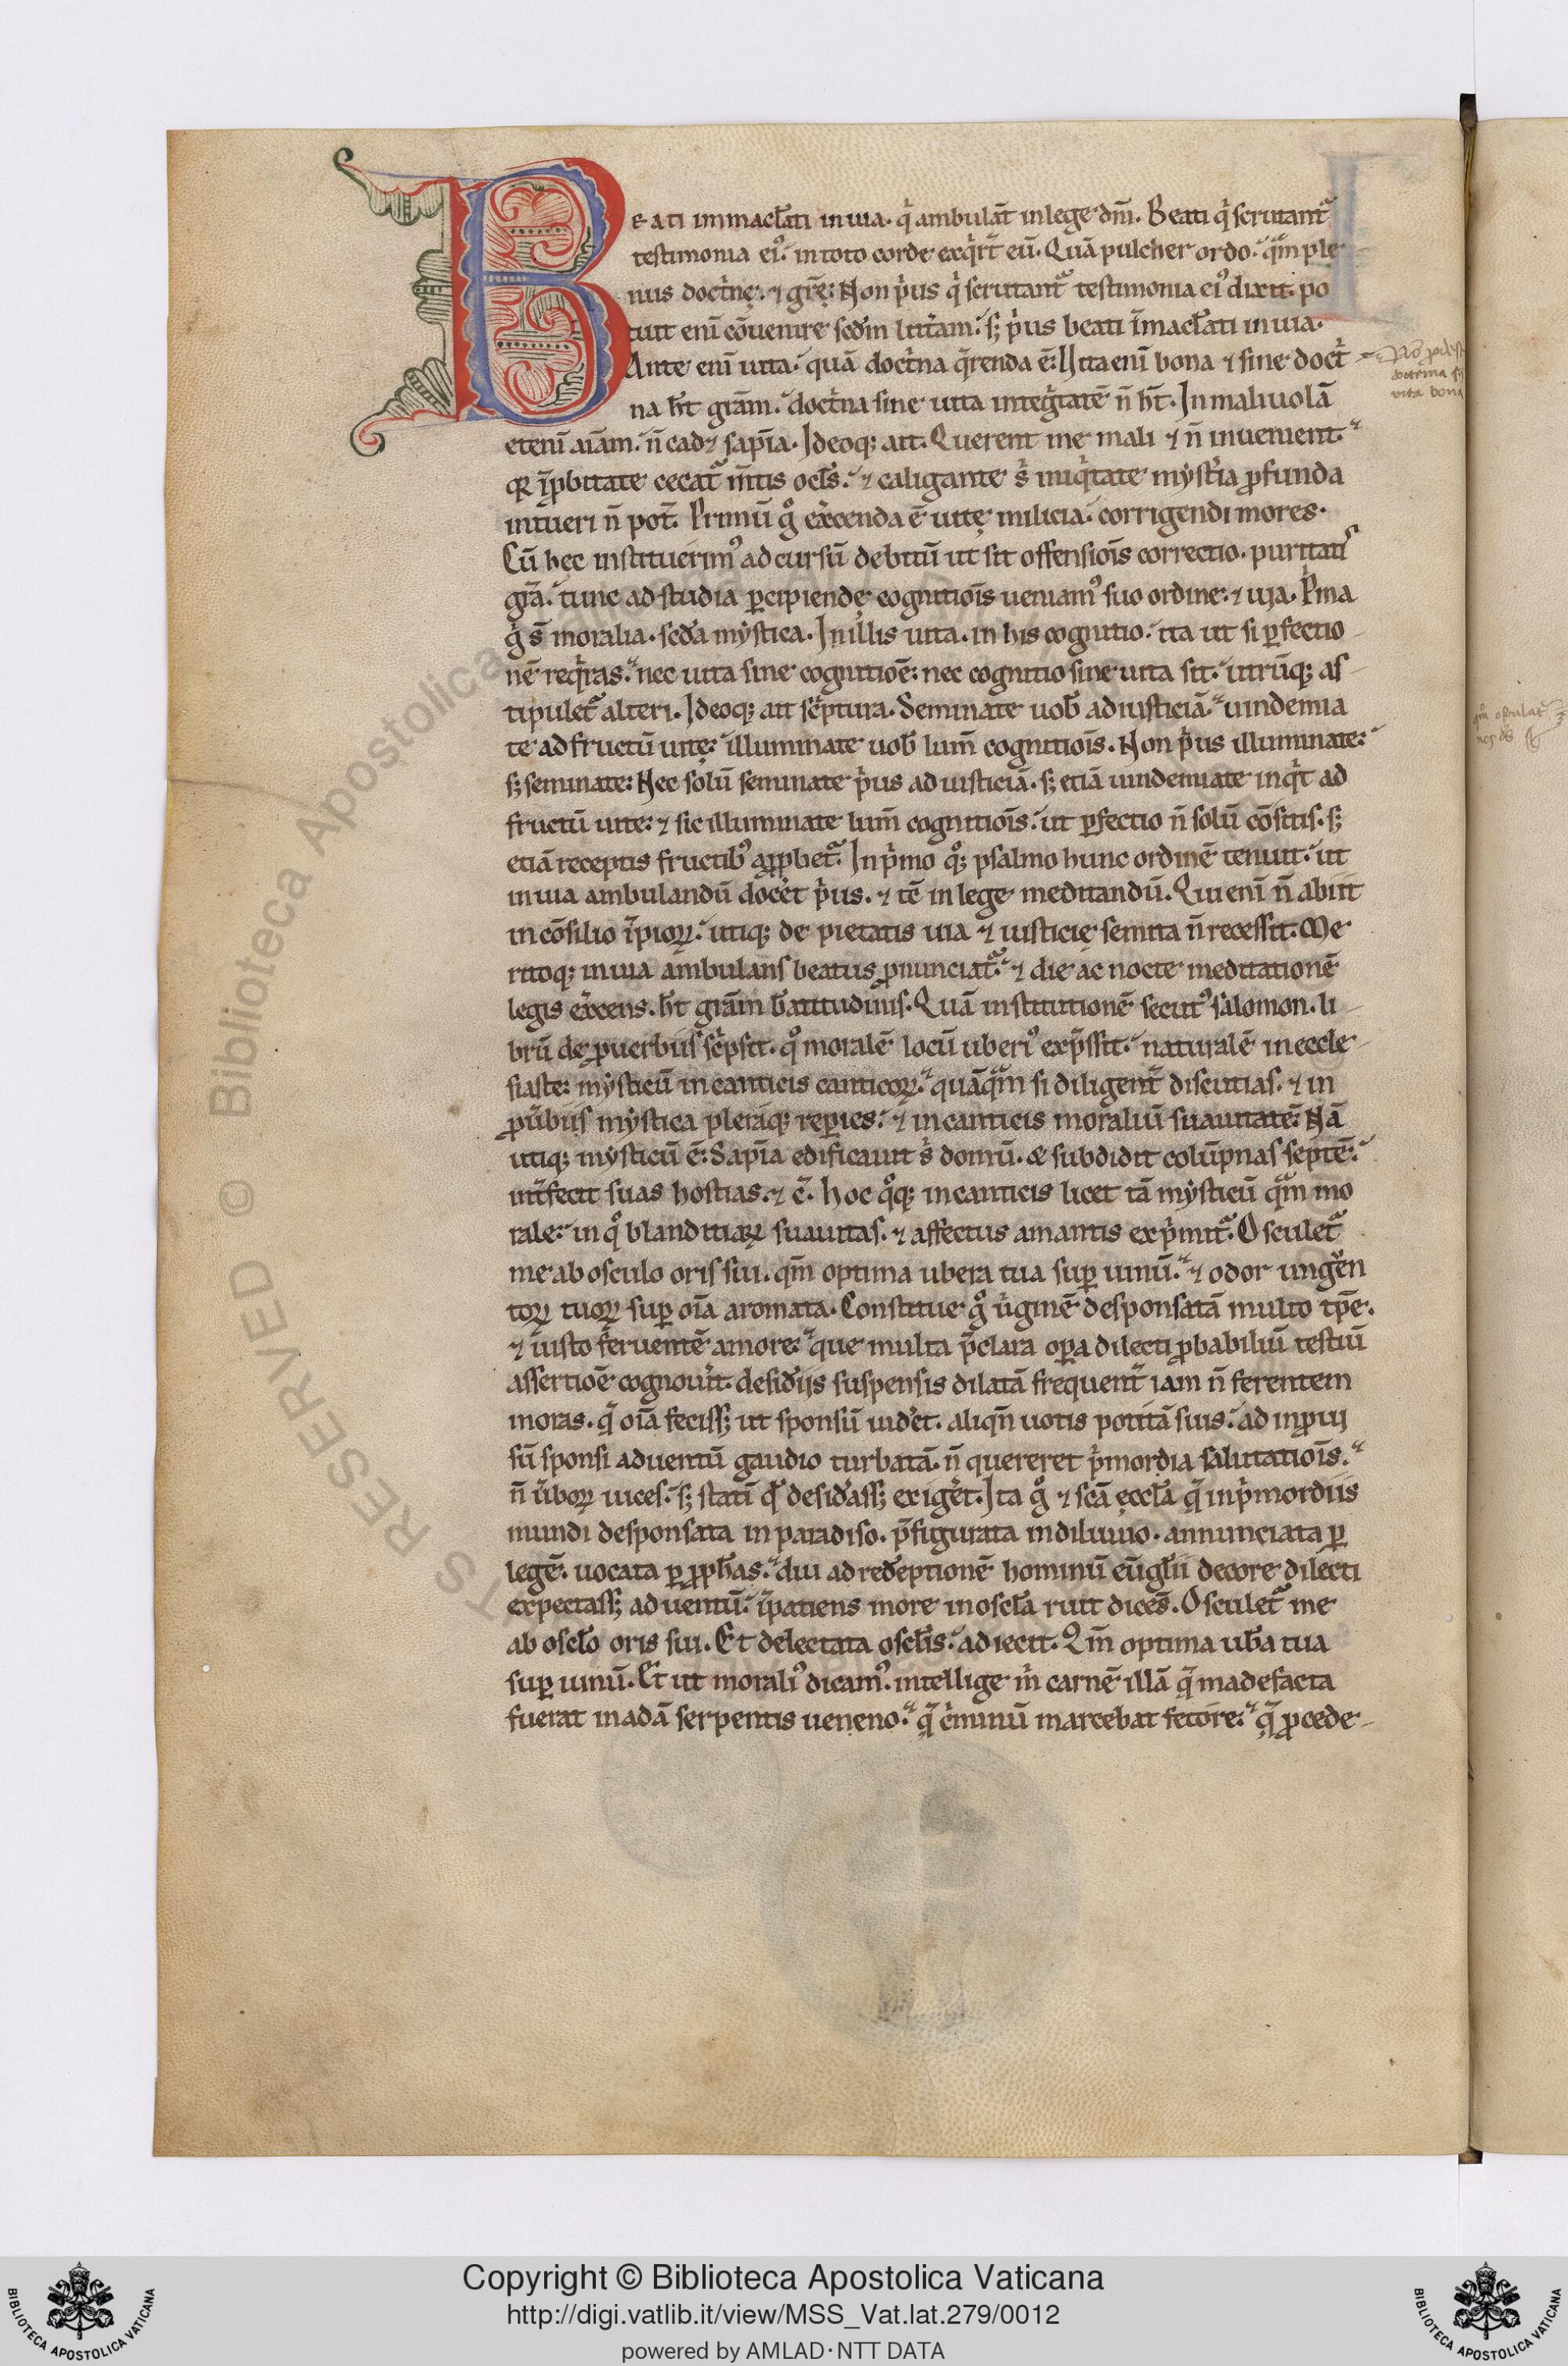 Beati immacl̃ati in uia. q̇ ambulãt in lege dñi. Beati q̇ scrutant᷑
testimonia ei᷒. in toto corde exq̇rt̃ eũ. Quã pulcher ordo. q̃m ple
nus doct̓nę. ⁊ gr̃ę. Non p̓us q̇ scrutant᷑ testimonia ei᷒ dixit. po
tuit enĩ cõuenire scđm litt̓am. sꝫ p̓us beati ĩmacl̃ati in uia.
Ante enĩ uita. quã doct̓na q̃renda ẽ. Uita enĩ bona ⁊ sine doct̓
na h̃t grãm. doct̓na sine uita integ̓tatẽ ñ h̃t. In maliuolã
etenĩ aĩam. ñ cadꝫ sapĩa. Ideoqꝫ ait. Querent me mali ⁊ ñ inuenient.
qꝛ ĩꝓbitate cecat᷑ m̃tis ocl̃s. ⁊ caligante s̓ iniq̇tate myst̓ia ꝓfunda
intueri ñ pot̃. Primũ g̊ ex̓cenda ẽ uitę milicia. corrigendi mores.
Cũ hec instituerim᷒ ad cursũ debitũ ut sit offensiõis correctio. puritatis
grã. tunc ad studia ꝑcipiendę cognitiõis ueniam᷒ suo ordine. ⁊ uia. P̓ma
g̊ s̃ moralia. scđa mystica. In illis uita. in his cognitio. ita ut si ꝑfectio
nẽ req̇ras. nec uita sine cognitiõe. nec cognitio sine uita sit. utrũqꝫ as
tipulet᷑ alteri. Ideoqꝫ ait sc̓ptura. Seminate uob̃ ad iusticiã. uindemia
te ad fructũ uitę. illuminate uob̃ lum̃ cognitiõis. Non p̓us illuminate.
sꝫ seminate. Nec solũ seminate p̓us ad iusticiã. sꝫ etiã uindemiate inq̇t ad
fructũ uite. ⁊ sic illuminate lum̃ cognitiõis. ut ꝑfectio ñ solũ cõsitis. sꝫ
etiã receptis fructib᷒ aꝓbet᷑. In p̓mo q̊ꝫ psalmo hunc ordinẽ tenuit. ut
in uia ambulandũ docẽt p̓us. ⁊ tẽ in lege meditandũ. Qui enĩ ñ abiit
in cõsilio ĩpioꝝ. utiqꝫ de pietatis uia ⁊ iusticię semita ñ recessit. Me
ritoqꝫ in uia ambulans beatus ꝓnunciat᷑. ⁊ die ac nocte meditationẽ
legis ex̓cens. h̃t grãm b̃atitudinis. Quã institutionẽ secut᷒ salomon. li
brũ de ꝓuerbiis sc̓psit. q̊ moralẽ locũ uberi᷒ exp̃ssit. naturalẽ in eccle
siaste. mysticũ in canticis canticoꝝ. quãq̃m si diligent̃ discutias. ⁊ in
ꝓũbiis mystica pleraqꝫ reꝑies. ⁊ in canticis moraliũ suauitatẽ. Nã
utiqꝫ mysticũ ẽ. Sapĩa edificauit s̓ domũ. & subdidit colũpnas septẽ.
int̃fecit suas hostias. ⁊ c̃. hoc q̊qꝫ in canticis licet tã mysticũ q̃m mo
rale. in q̊ blanditiaꝝ suauitas. ⁊ affectus amantis exp̓mit᷑. Osculet᷑
me ab osculo oris sui. qm̃ optima ubera tua suꝑ uinũ. ⁊ odor ungẽn
toꝝ tuoꝝ suꝑ oĩa aromata. Constitue g̊ ũginẽ desponsatã multo tp̃e.
⁊ iusto feruentẽ amore. que multa p̃clara oꝑa dilecti ꝓbabiliũ testiũ
assertiõe cognou̓it. desid̓iis suspensis dilatã frequent̃ iam ñ ferentem
moras. q̃ oĩa fecissꝫ ut sponsũ uid̓et. aliqñ uotis potitã suis. ad inꝓui
sũ sponsi aduentũ gaudio turbatã. ñ quereret p̓mordia salutatiõis.
ñ ũboꝝ uices. sꝫ statĩ qđ desid̓assꝫ exig̓et. Ita g̊ ⁊ scã eccl̃a q̃ in p̓mordiis
mundi desponsata in paradiso. p̃figurata in diluuio. annunciata ꝑ
legẽ. uocata ꝑ ꝓph̃as. diu ad redẽptionẽ hominũ eũgl̃ii decore dilecti
expectassꝫ aduentũ. ĩpatiens more in oscl̃a ruit dicẽs. Osculet᷑ me
ab oscl̃o oris sui. Et delectata oscl̃is. adiecit. Qm̃ optima ub̃a tua
suꝑ uinũ. Et ut morali᷒ dicam᷒. intellige m̓ carnẽ illã q̃ madefacta
fuerat in adã serpentis ueneno. q̃ c̓minũ marcebat fetore. q̃ ꝓcede
doctrina
vita bona
© Biblioteca Apostolica
RESERVED
Copyright © Biblioteca Apostolica Vaticana
http://digi.vatlib.it/view/MSS_Vat.lat.279/0012
powered by AMLAD·NTT DATA
BIBLIOTECA APOSTOLICA VATICANA
BIBLIOTECA APOSTOLICA VATICANA